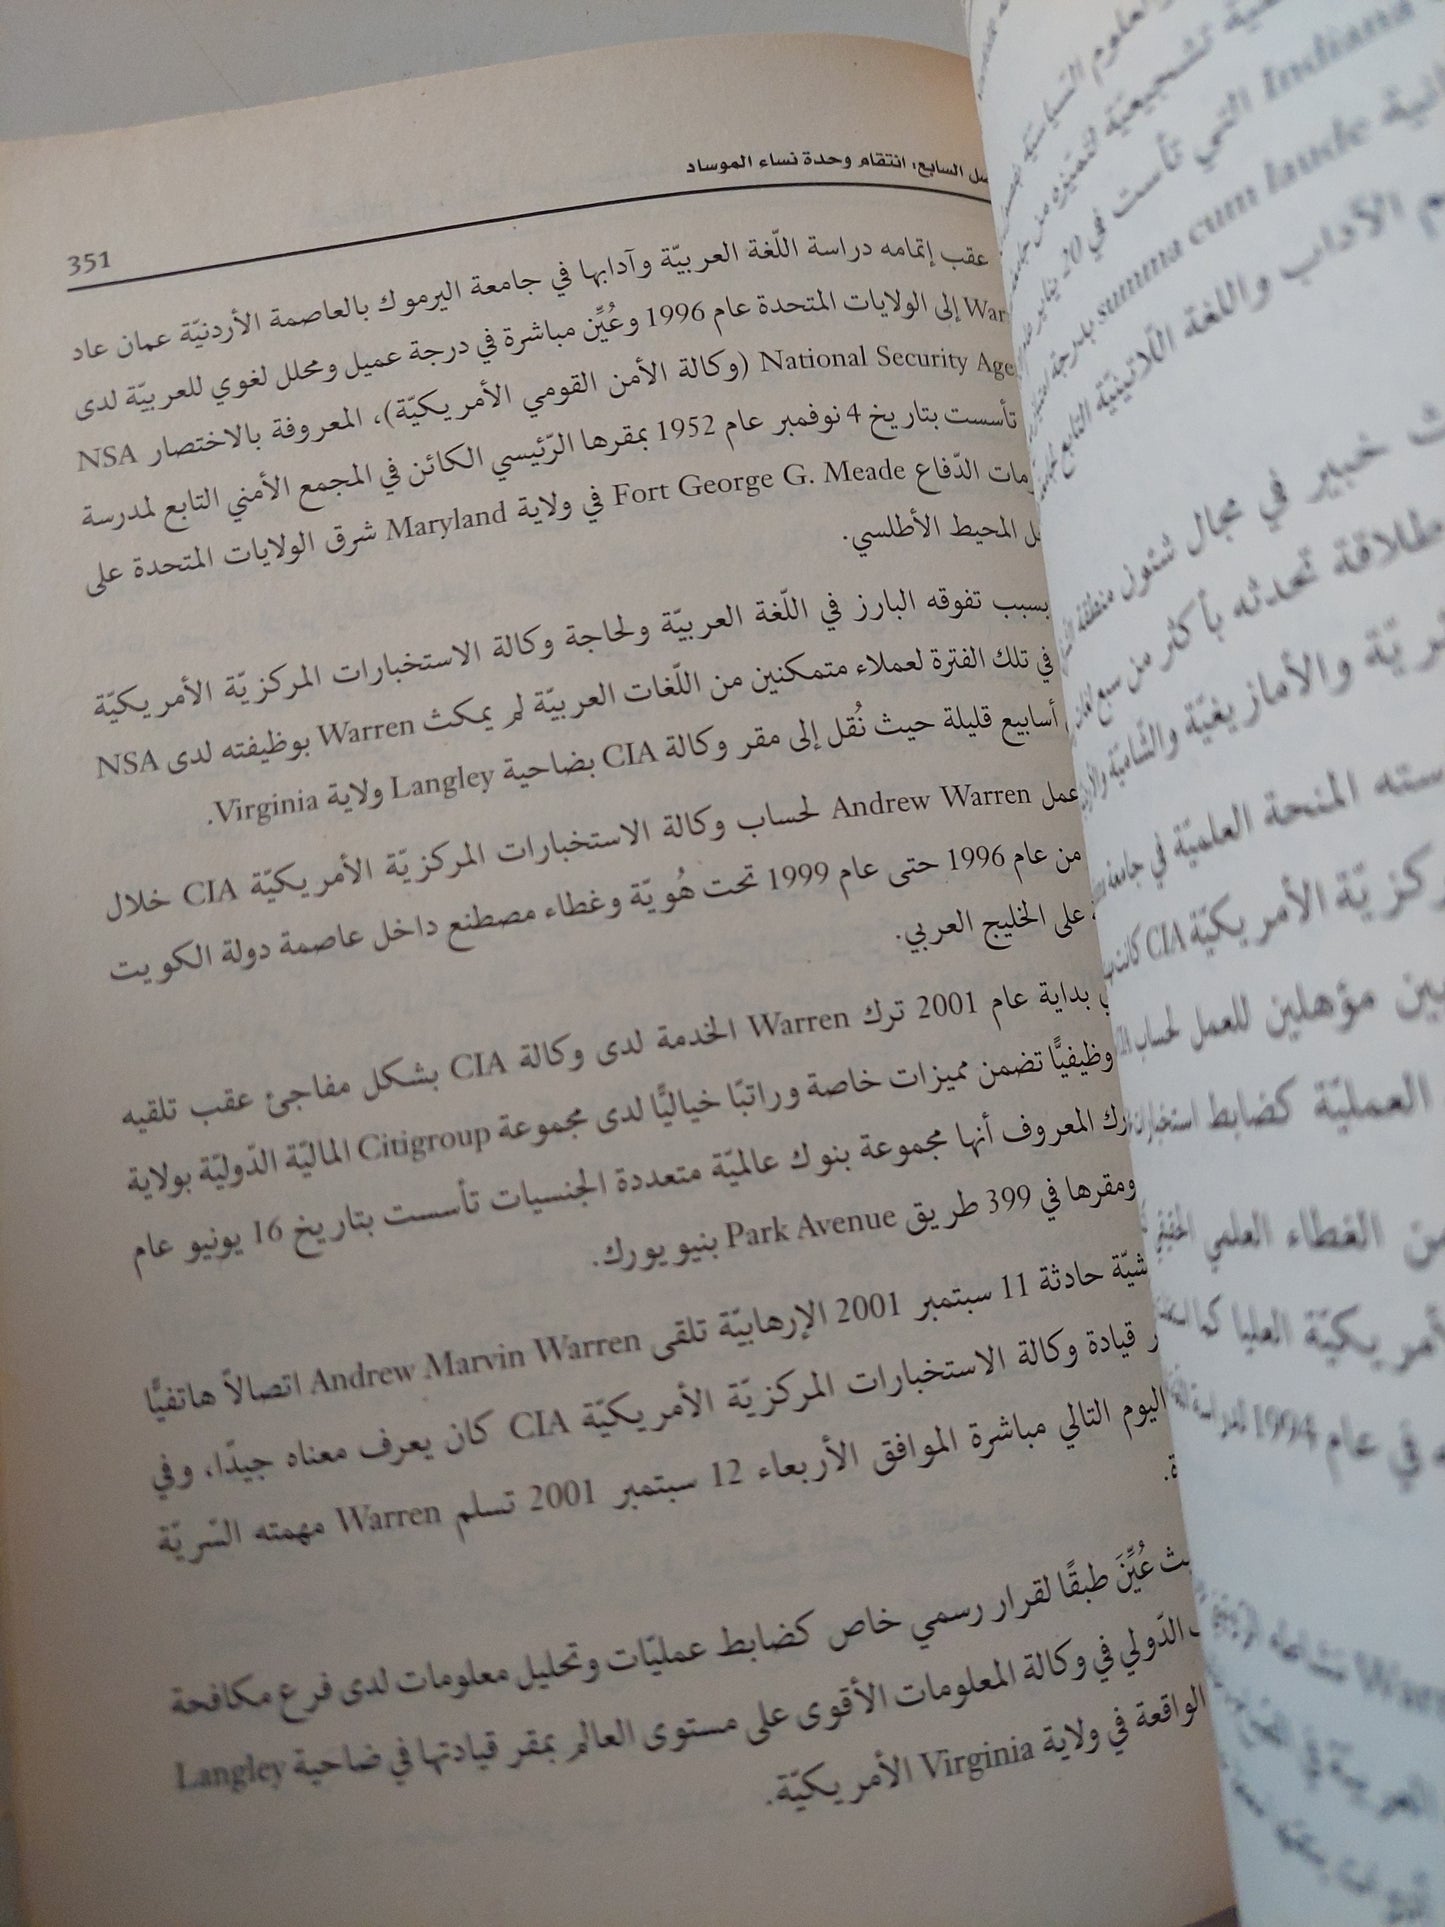 السابع: انتقام وحدة نساء الموساد
351
عقب إتمامه دراسة اللّغة العربيّة وآدابها في جامعة اليرموك بالعاصمة الأردنيّة عمان عاد
إلى الولايات المتحدة عام 1996 وعُيِّن مباشرة في درجة عميل ومحلل لغوي للعربيّة لدى
National Security (وكالة الأمن القومي الأمريكيّة)، المعروفة بالاختصار NSA
تأسست بتاريخ 4 نوفمبر عام 1952 بمقرها الرّئيسي الكائن في المجمع الأمني التابع لمدرسة
الدّفاع Fort George G. Meade في ولاية Maryland شرق الولايات المتحدة على
المحيط الأطلسي.
بسبب تفوقه البارز في اللّغة العربيّة ولحاجة وكالة الاستخبارات المركزيّة الأمريكيّة
في تلك الفترة لعملاء متمكنين من اللّغات العربيّة لم يمكث Warren بوظيفته لدى NSA
أسابيع قليلة حيث نُقل إلى مقر وكالة CIA بضاحية Langley ولاية Virginia.
عمل Andrew Warren لحساب وكالة الاستخبارات المركزيّة الأمريكيّة CIA خلال
من عام 1996 حتى عام 1999 تحت هُويّة وغطاء مصطنع داخل عاصمة دولة الكويت
على الخليج العربي.
بداية عام 2001 ترك Warren الخدمة لدى وكالة CIA بشكل مفاجئ عقب تلقيه
وظيفيًّا تضمن مميزات خاصة وراتبًا خياليًّا لدى مجموعة Citigroup الماليّة الدّوليّة بولاية
المعروف أنها مجموعة بنوك عالميّة متعددة الجنسيات تأسست بتاريخ 16 يونيو عام
ومقرها في 399 طريق Park Avenue بنيو يورك.
حادثة 11 سبتمبر 2001 الإرهابيّة تلقى Andrew Marvin Warren اتصالاً هاتفيًّا
قيادة وكالة الاستخبارات المركزيّة الأمريكيّة CIA كان يعرف معناه جيدًا، وفي
اليوم التالي مباشرة الموافق الأربعاء 12 سبتمبر 2001 تسلم Warren مهمته السّريّة
عُيِّنَ طبقًا لقرار رسمي خاص كضابط عمليّات وتحليل معلومات لدى فرع مكافحة
الدّولي في وكالة المعلومات الأقوى على مستوى العالم بمقر قيادتها في ضاحية Langley
الواقعة في ولاية Virginia الأمريكيّة.
Indiana التي تأست في 20 يناير
summa cum laude
الآداب واللغة اللّاتينيّة
خبير في مجال شئون منطقة
طلاقة تحدثه بأكثر من سبع
والأمازيغيّة والشّاميّة
المنحة العلميّة في جامعة
الأمريكيّة CIA
مؤهلين للعمل لحساب
العمليّة كضابط
الغطاء العلمي
العليا كما
في عام 1994